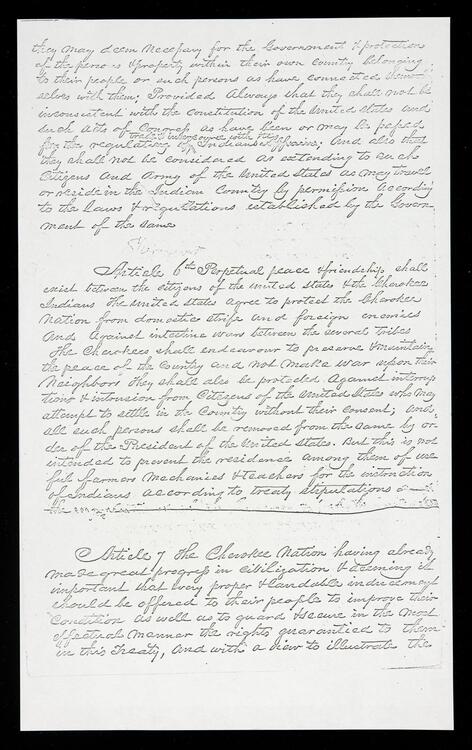 they may deem necessary for the Government & protection
of the persons & property within their own country belonging
to their people or such persons as have connected them-
selves with them; Provided Always that they shall not be
inconsistent with the constitution of the United States and
such Acts of Congress as have been or may be passed
trade & intercourse with the
for the regulating of Indians affairs; And also that
they shall not be considered as extending to such
Citizens and Army of the United States as may travel
or reside in the Indian Country by permission according
to the laws & regulations established by the Govern-
ment of the same
Article 6th Perpetual peace & friendship shall
exist between the citizens of the united states & the Cherokee
Indians The United States agree to protect the Cherokee
Nation from domestic strife and foreign enemies
And against intestine wars between the several tribes
The Cherokees shall endeavour to preserve & maintain
the peace of the Country and not make war upon their
Neighbors they shall also be protected against interrup-
tions & intrusion from Citizens of the United States who may
attempt to settle in the Country without their consent; and
all such persons shall be removed from the same by or-
der of the President of the United States. But this is not
intended to prevent the residence among them of use
ful farmers Mechanics & teachers for the instruction
of Indians according to treaty stipulations
the
Article 7 The Cherokee Nation having already
made great progress in civilization & deeming it
important that every proper & laudable inducement
should be offered to their people to improve their
Condition as well as to guard & secure in the most
effectual manner the rights guarantied to them
in this Treaty, and with a view to illustrate the